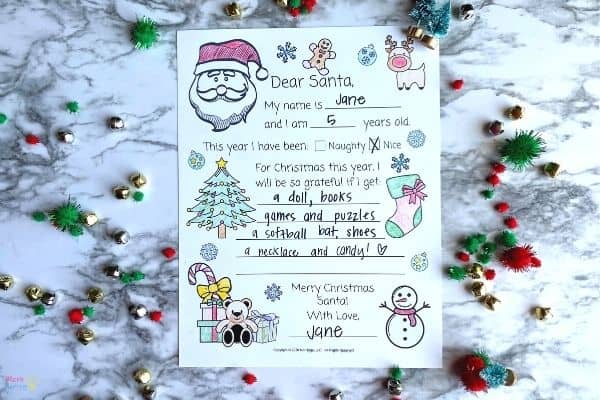 Dear Santa,
My name is Jane
and I am 5 years old.
This year I have been: Naughty X Nice
For Christmas this year, I
will be so grateful if I get:
a doll, books
games and puzzles
a softball bat, shoes
a necklace and candy! ♡
Merry Christmas
Santa!
With Love,
Jane